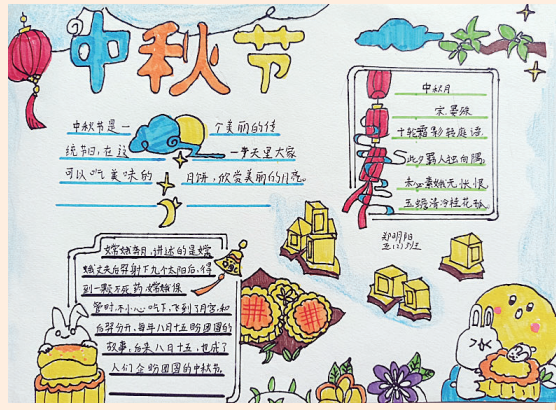 中秋节
中秋节是一个美丽的传
统节日,在这一天里大家
可以吃美味的月饼,欣赏美丽的月亮。
中秋月
宋 晏殊
十轮霜影转庭梧
此夕羁人独向隅
未必素娥无怅恨
玉蟾清冷桂花孤
郑明阳
五(2)班
嫦娥奔月,讲述的是嫦
娥丈夫后羿射下九个太阳后,得
到一颗不死药,嫦娥保
管时,不小心吃下,飞到了月宫,和
后羿分开,每年八月十五盼团圆的
故事,后来八月十五,也成了
人们企盼团圆的中秋节。